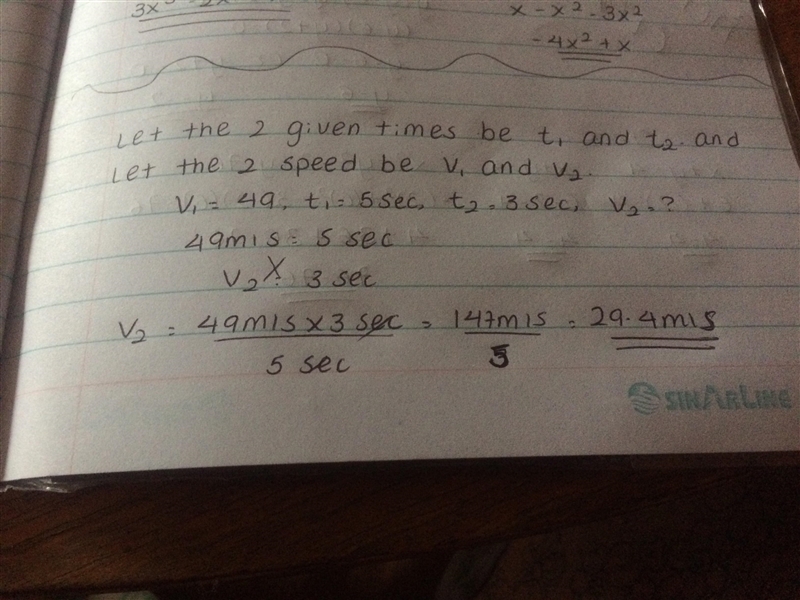 x - x² - 3x²
- 4x² + x
Let the 2 given times be t₁ and t₂. and
Let the 2 speed be V₁ and V₂.
V₁ = 49, t₁ = 5 sec, t₂ = 3 sec, V₂ = ?
49m/s = 5 sec
V₂ X 3 sec
V₂ = 49m/s x 3 sec = 147m/s = 29.4m/s
5 sec 5
SINARLINE